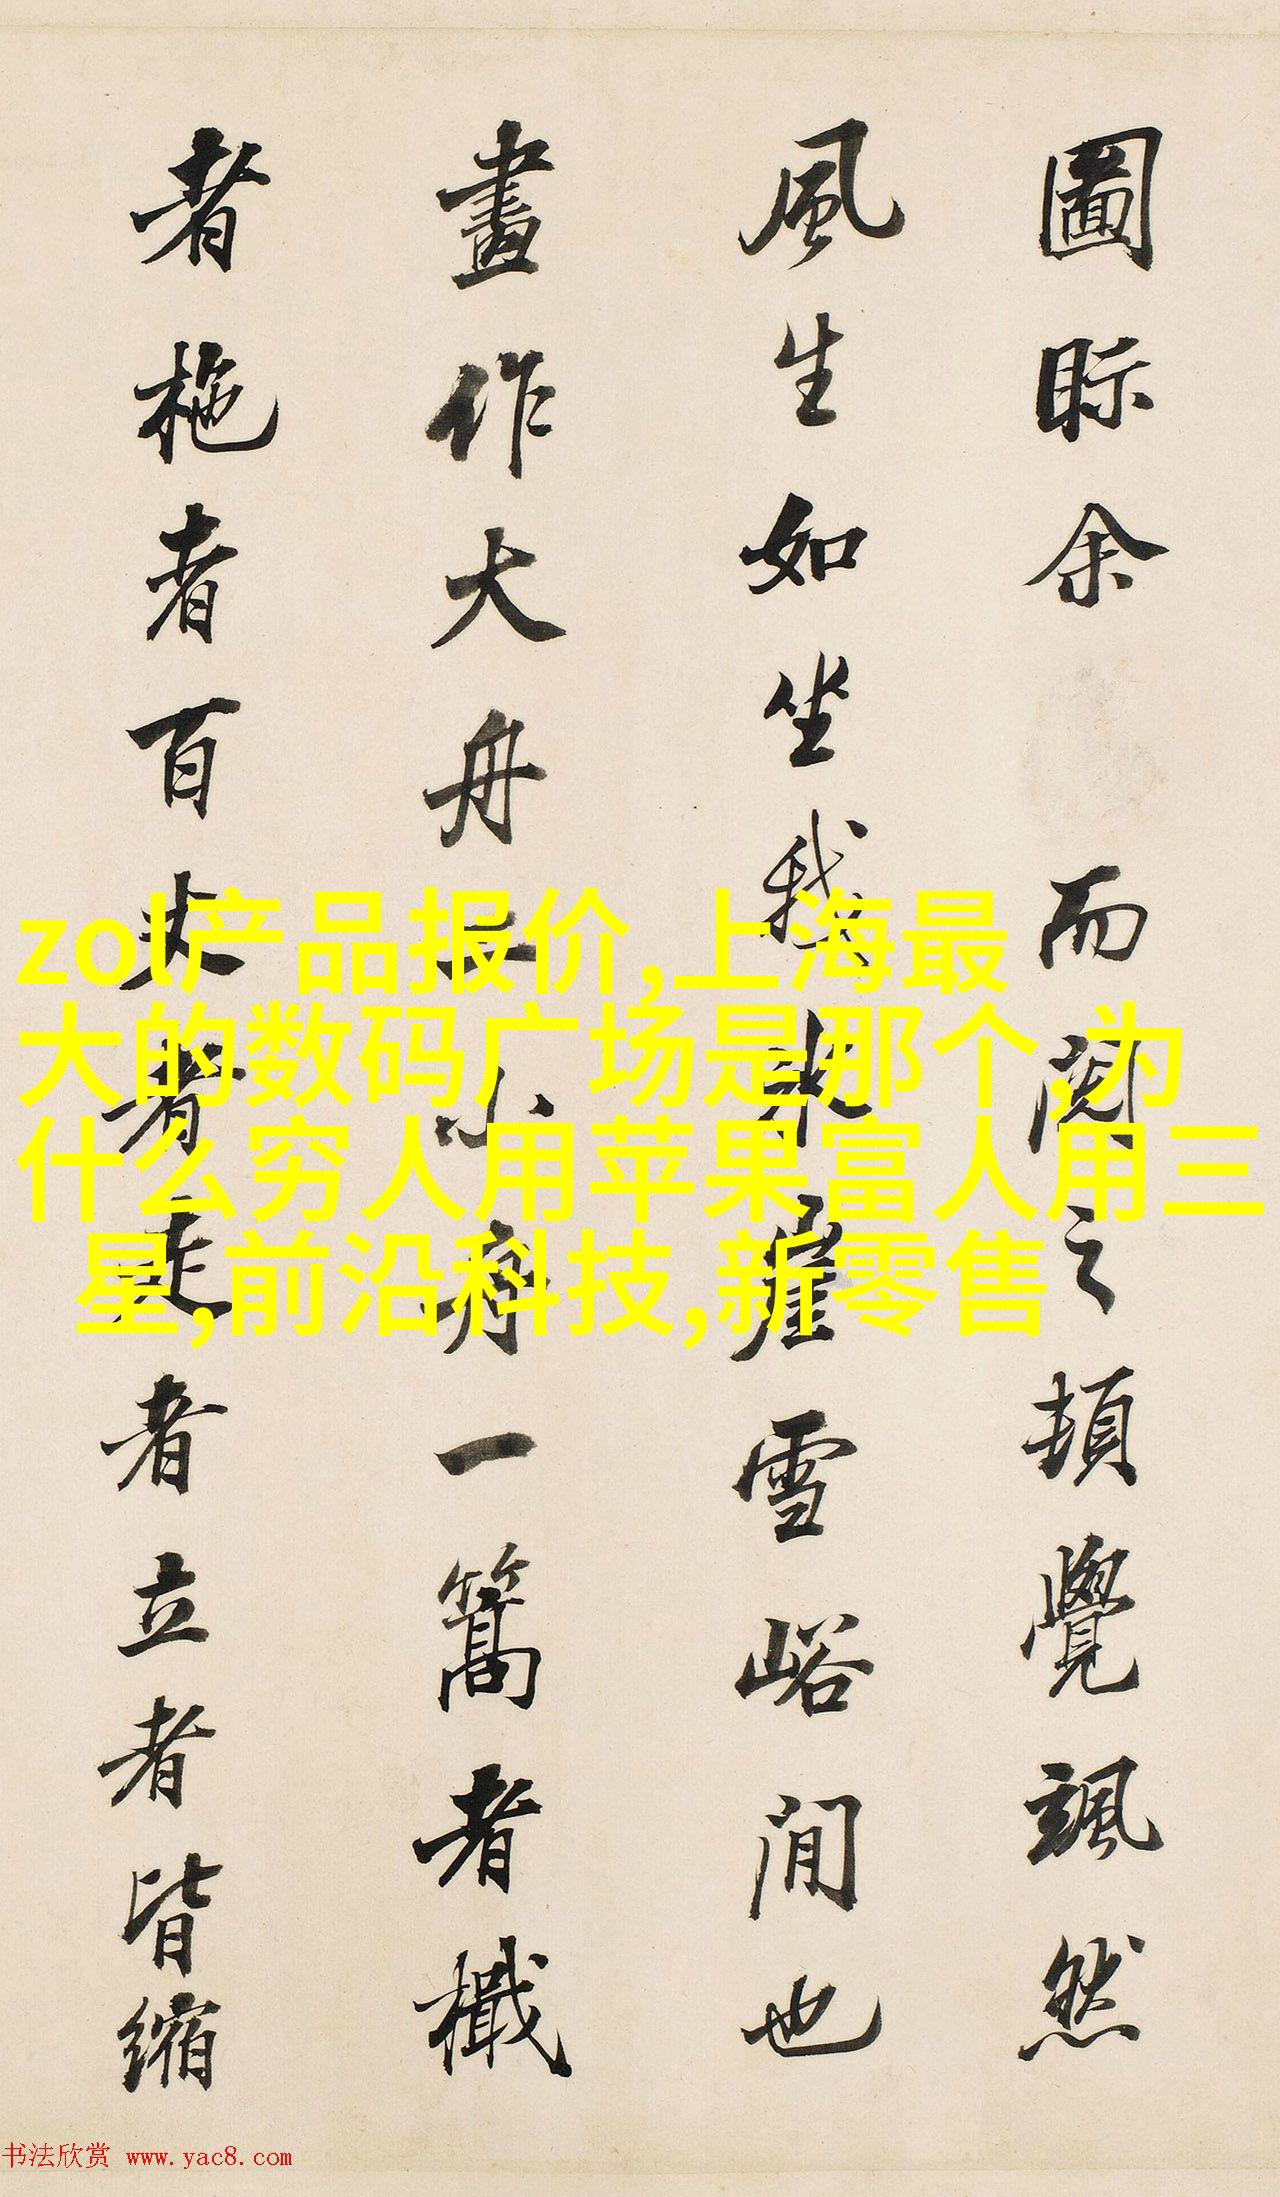 圖眎余 而閱之頓覺颯然
風生如坐我氷崖雪峪間也
畫作大舟一小舟一篙者檝
者柂者百丈者走者立者皆縮
zol产品报价,上海最
大的数码广场是那个,为
什么穷人用苹果富人用三
星,前沿科技,新零售
书法欣赏 www.yac8.com